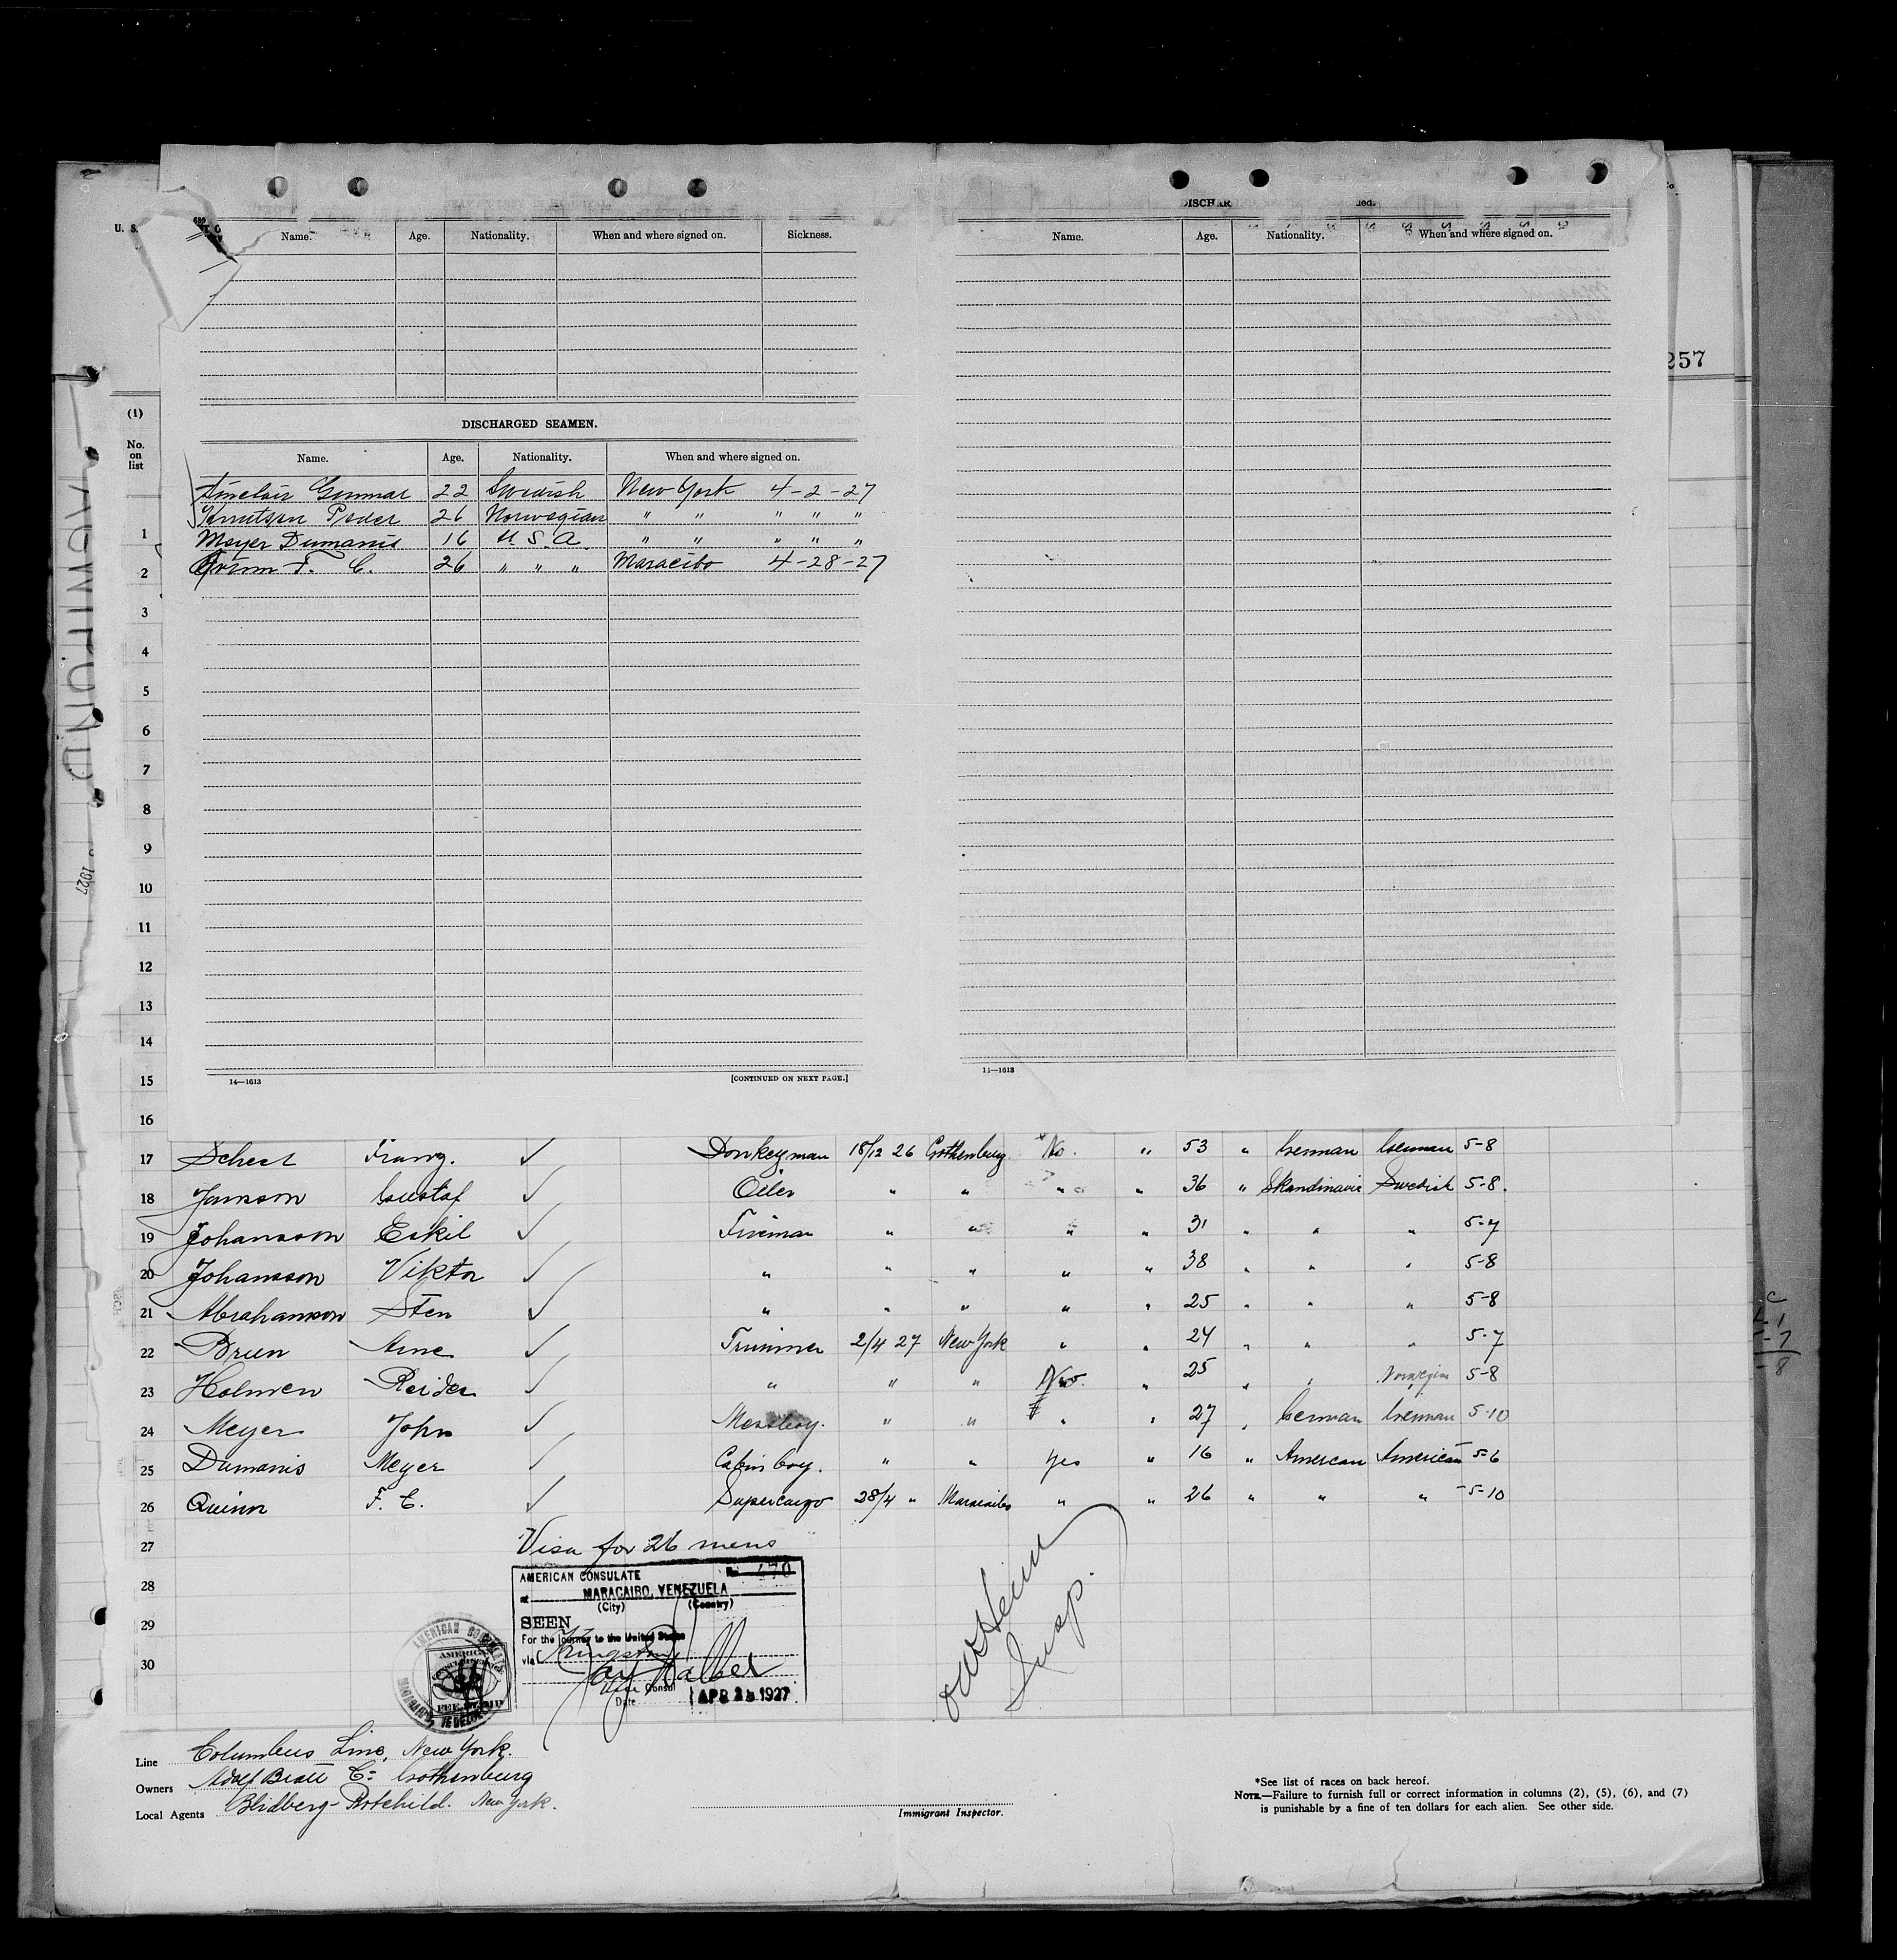 U. S.
Name. Age. Nationality. When and where signed on. Sickness.
DISCHARGED SEAMEN.
Name. Age. Nationality. When and where signed on.
Sinclair Gunnar 22 Swedish New York 4-2-27
Knutsen Peder 26 Norwegian " " " " "
Meyer Dumanis 16 U. S. A. " " " " "
Quinn F. C. 26 " " " Maracibo 4-28-27
14—1613 [CONTINUED ON NEXT PAGE.]
DISCHAR ued.
Name. Age. Nationality. When and where signed on.
14—1613
257
(1)
No.
on
list
1
2
3
4
5
6
7
8
9
10
11
12
13
14
15
16
AGWIHUND
1927
17 Scheel Franz. ✓ Donkeyman 18/12 26 Gothenburg No. " 53 " German German 5-8
18 Jansson Gustaf ✓ Oiler " " " " 36 " Skandinavic Swedish 5-8.
19 Johansson Eskil ✓ Fireman " " " " 31 " " " 5-7
20 Johansson Viktor ✓ " " " " " 38 " " " 5-8
21 Abrahamson Sten ✓ " " " " " 25 " " " 5-8
22 Bruen Arne ✓ Trimmer 2/4 27 New York " " 24 " " " 5-7
23 Holmen Reidar ✓ " " " No. " 25 " " Norwegian 5-8
24 Meyer John ✓ Messboy. " " " " 27 " German German 5-10
25 Dumanis Meyer ✓ Cabin boy. " " Yes " 16 " American American 5-6
26 Quinn F. C. ✓ Supercargo 28/4 " Maracaibo " " 26 " " " 5-10
27 Visa for 26 mens
28
29
30
AMERICAN CONSULATE No. 470
at MARACAIBO, VENEZUELA
(City) (Country)
SEEN
For the journey to the United States
via Kingston
Jay Walker
Vice Consul
Date APR 28 1927
AMERICAN CONSULATE
MARACAIBO, VENEZUELA
AMERICAN
FEE STAMP
Insp.
Line Columbus Line, New York.
Owners Adolf Bratt & Co: Gothenburg
Local Agents Blidberg-Rotchild. New York.
Immigrant Inspector.
*See list of races on back hereof.
NOTE.—Failure to furnish full or correct information in columns (2), (5), (6), and (7)
is punishable by a fine of ten dollars for each alien. See other side.